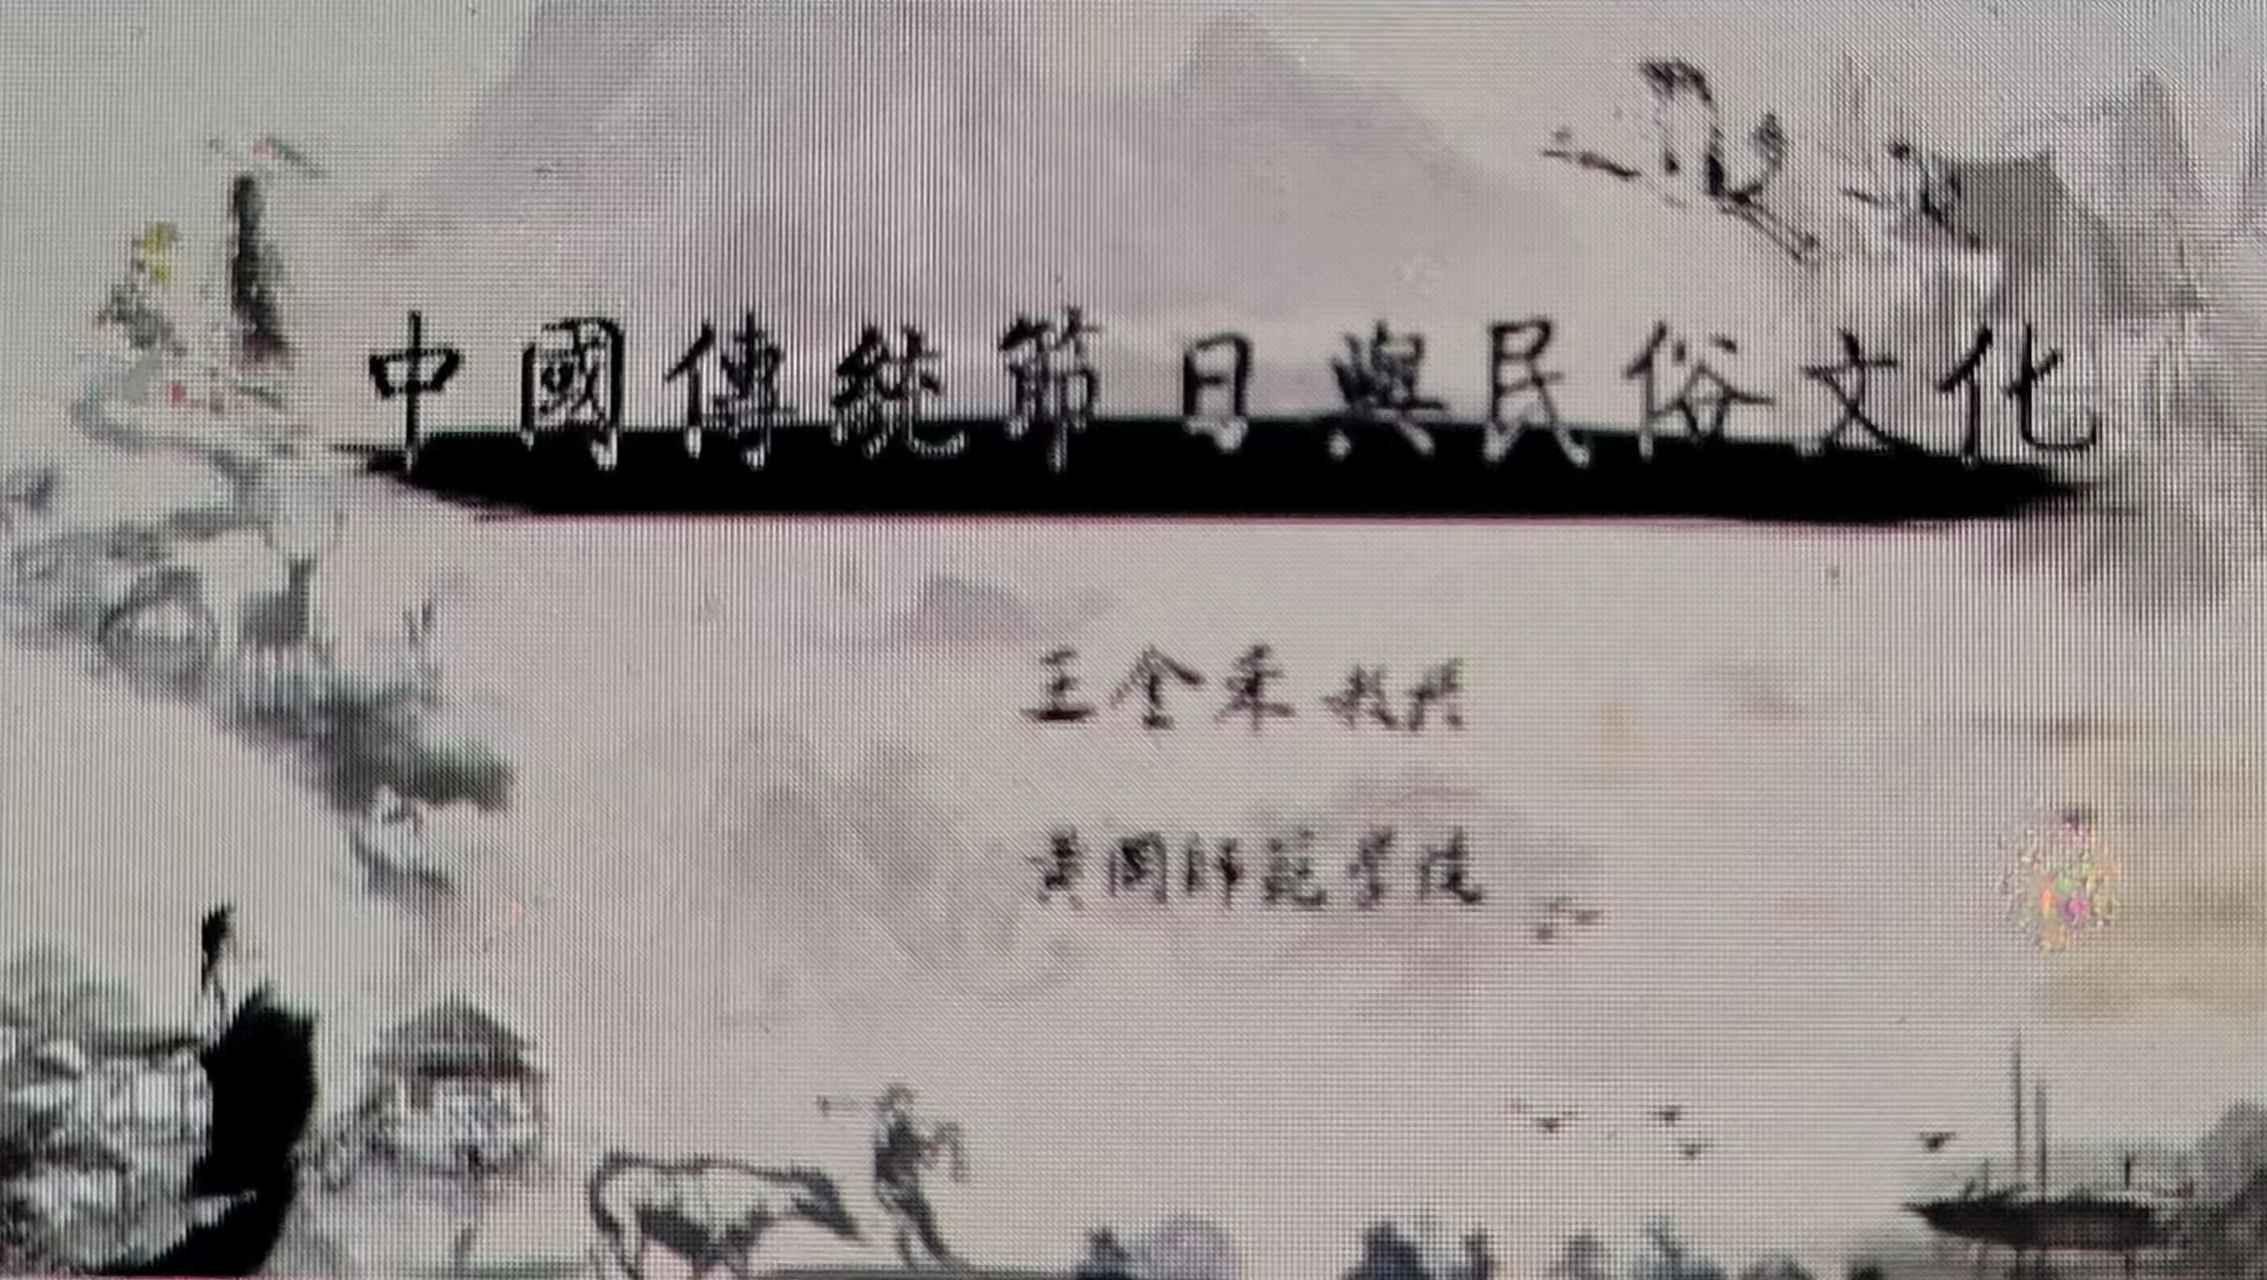 中國傳統節日與民俗文化
王全禾 教授
黄岡師範学院